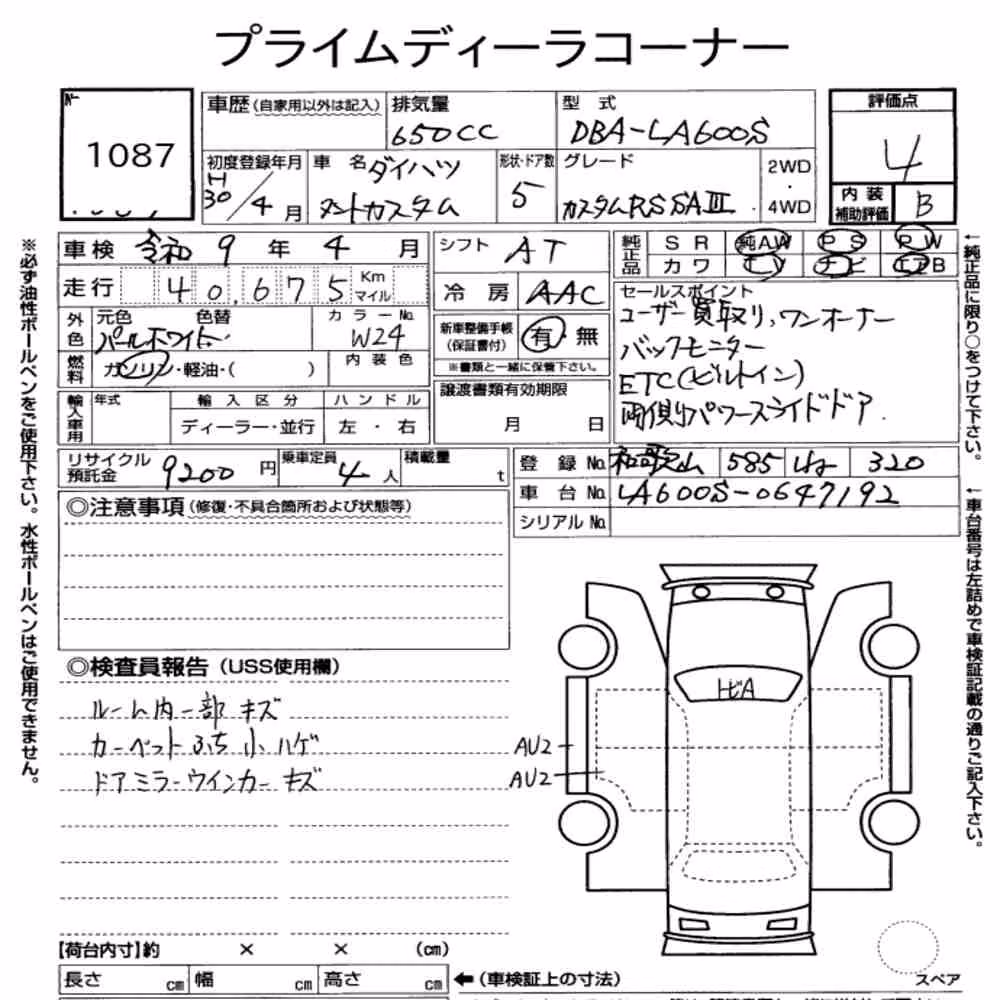 プライムディーラコーナー
№
1087
車歴(自家用以外は記入)
排気量
650CC
型 式
DBA-LA600S
評価点
4
内装
補助評価
B
初度登録年月
H
30/4月
車 名 ダイハツ
タントカスタム
形状・ドア数
5
グレード
カスタムRS SAⅢ
2WD
・
4WD
車検 令和 9 年 4 月
走行 40,675 Km
マイル
外色
元色 色替
パールホワイト
カラーNo.
W24
燃料
ガソリン・軽油・( )
内装色
輸入車用
年式
輸入区分
ディーラー・並行
ハンドル
左・右
シフト AT
冷房 AAC
新車整備手帳
(保証書付)
有・無
※書類と一緒に保管下さい。
譲渡書類有効期限
月 日
純正品
SR 純AW PS PW
カワ TV ナビ エアB
セールスポイント
ユーザー買取り,ワンオーナー
バックモニター
ETC(ビルトイン)
両側パワースライドドア.
リサイクル
預託金
9200 円
乗車定員
4人
積載量
t
登録No. 和歌山 585 320
車台No. LA600S-0647192
シリアルNo.
◎注意事項(修復・不具合箇所および状態等)
◎検査員報告(USS使用欄)
ルーム内一部キズ
カーペットふち小ハゲ
ドアミラーウインカーキズ
トビA
AU2
AU2
【荷台内寸】約 × × (cm)
長さ cm 幅 cm 高さ cm
←(車検証上の寸法)
スペア
※必ず油性ボールペンをご使用下さい。水性ボールペンはご使用できません。
←純正品に限り○をつけて下さい。
←車台番号は左詰めで車検証記載の通りご記入下さい。